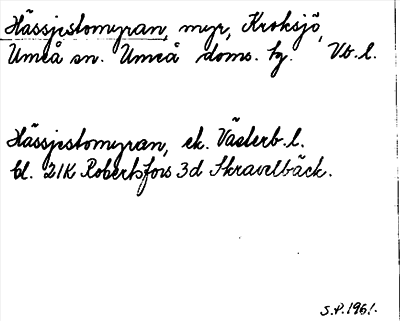 Hässjestomyran, myr, Kroksjö,
Umeå sn. Umeå doms. hj. V.b.l.
Hässjestomyran, ek. Västerb.l.
bl. 21K Robertsfors 3d Skravelbäck.
S.P.1961.